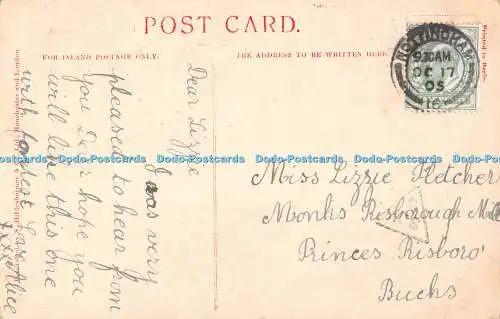 POST CARD.
FOR INLAND POSTAGE ONLY.
THE ADDRESS TO BE WRITTEN HERE
Printed in Berlin.
NOTTINGHAM
9 30AM
OC 17
05
Dear Lizzie
I was very
pleased to hear from
you Dear hope you
will like this one
with fondest Love
xxx Alice
Miss Lizzie Fletcher
Monks Risborough
Princes Risboro'
Bucks
Dodo-Postcards Dodo-Postcards Dodo-Postcards Dodo-Postcards Dodo-Postcards